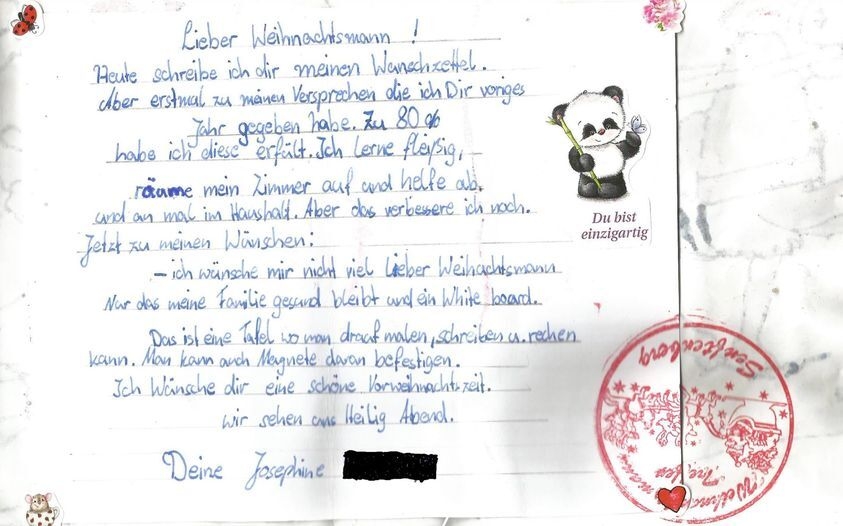 Lieber Weihnachtsmann !
Heute schreibe ich dir meinen Wunschzettel.
Aber erstmal zu meinen Versprechen die ich Dir voriges
Jahr gegeben habe. Zu 80 %
habe ich diese erfült. Ich lerne fleißig,
räume mein Zimmer auf und helfe ab.
und an mal im Haushalt. Aber das verbessere ich noch.
Jetzt zu meinen Wünschen:
- ich wünsche mir nicht viel lieber Weihachtsmann
Nur das meine Familie gesund bleibt und ein White board.
Das ist eine Tafel wo man drauf malen, schreiben u. rechen
kann. Man kann auch Magnete daran befestigen.
Ich Wünsche dir eine schöne Vorweihnachtszeit.
wir sehen uns Heilig Abend.
Deine Josephine
Du bist
einzigartig
Senftenberg